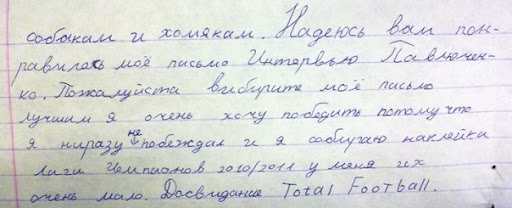 собакам и хомякам. Надеюсь вам пон-
равилось моё письмо Интервью Павлючен-
ко. Пожалуйста выбирите моё письмо
лучшим я очень хочу победить потому что
я ниразу не побеждал и я собираю наклейки
лиги Чемпионов 2010/2011 у меня их
очень мало. Досвидание Total Football.